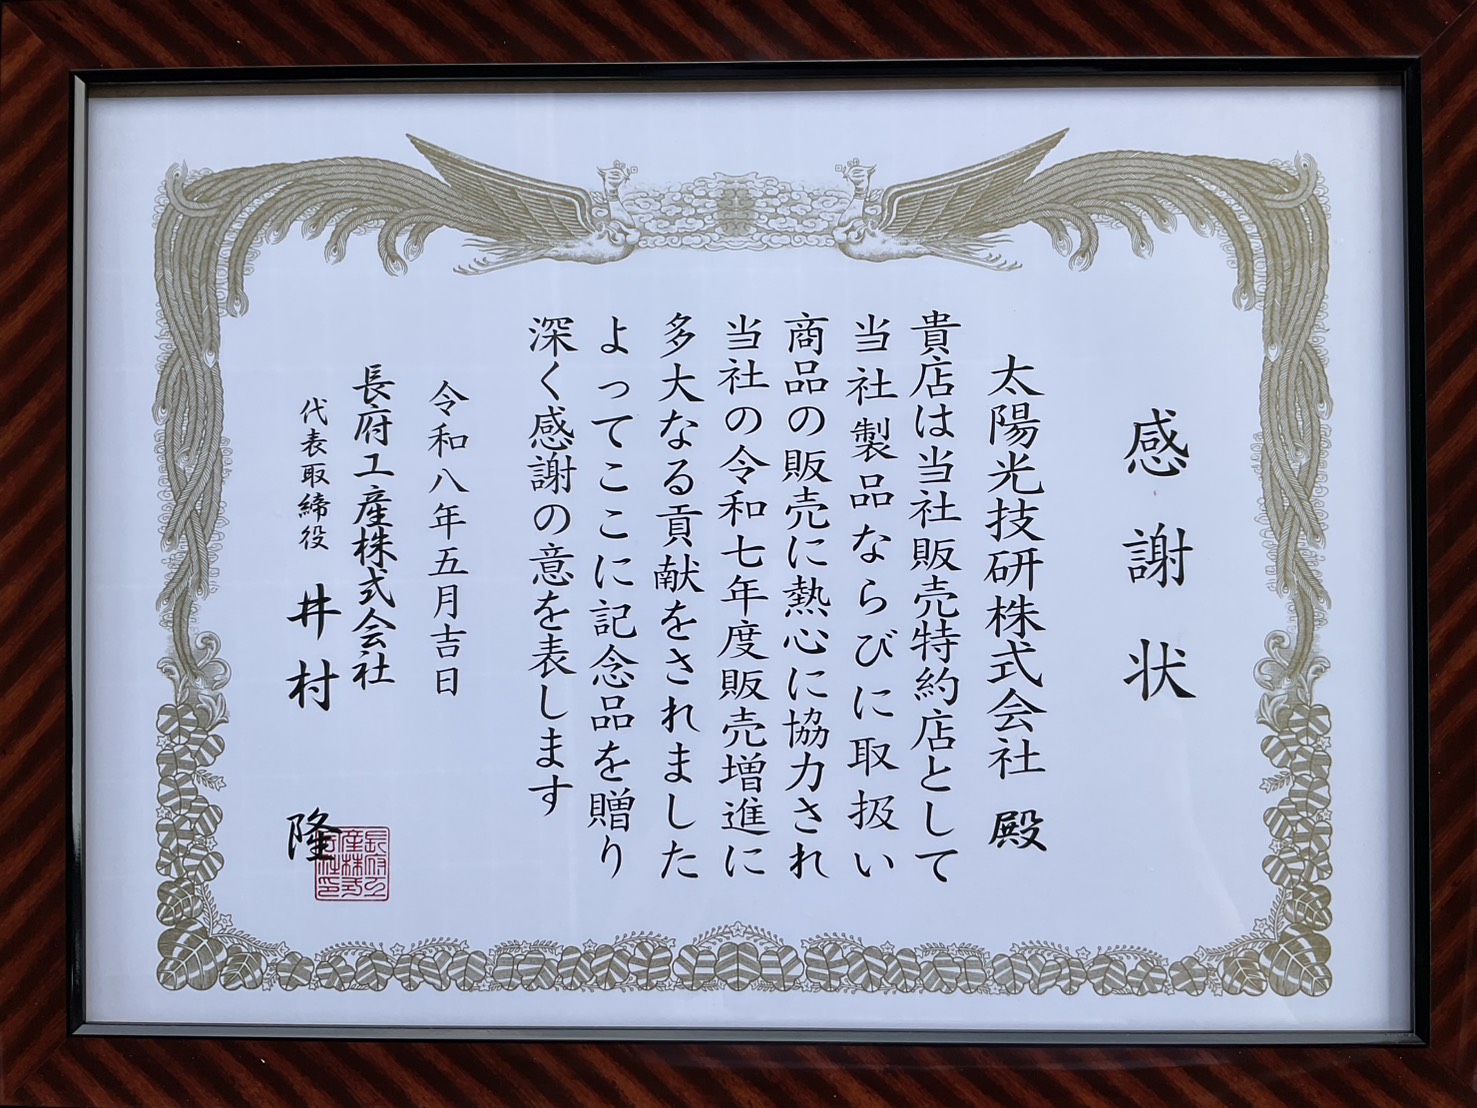 感謝状
太陽光技研株式会社 殿
貴店は当社販売特約店として
当社製品ならびに取扱い
商品の販売に熱心に協力され
当社の令和七年度販売増進に
多大なる貢献をされました
よってここに記念品を贈り
深く感謝の意を表します
令和八年五月吉日
長府工産株式会社
代表取締役 井村 隆
長府工
産株式
会社印